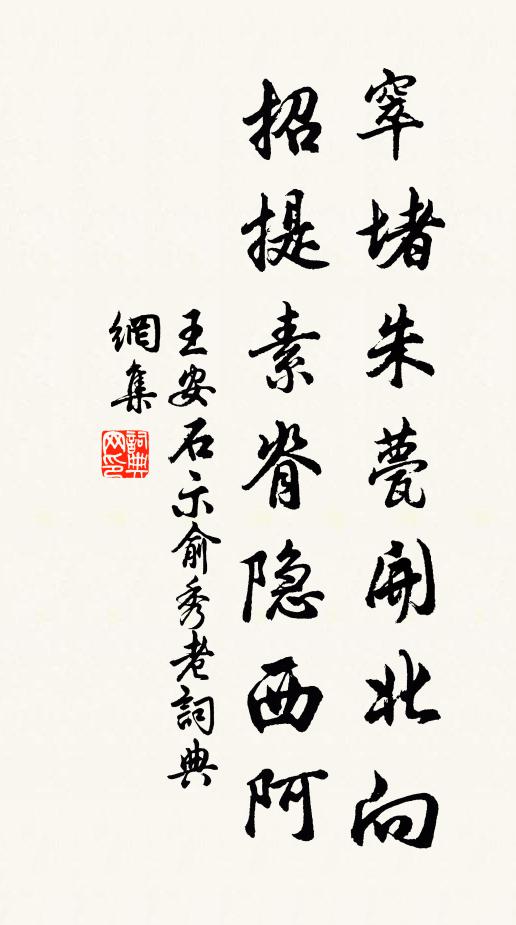 窣堵朱甍開北向
招提素脊隐西阿
王安石示俞秀老詞典
網集
詞典網印